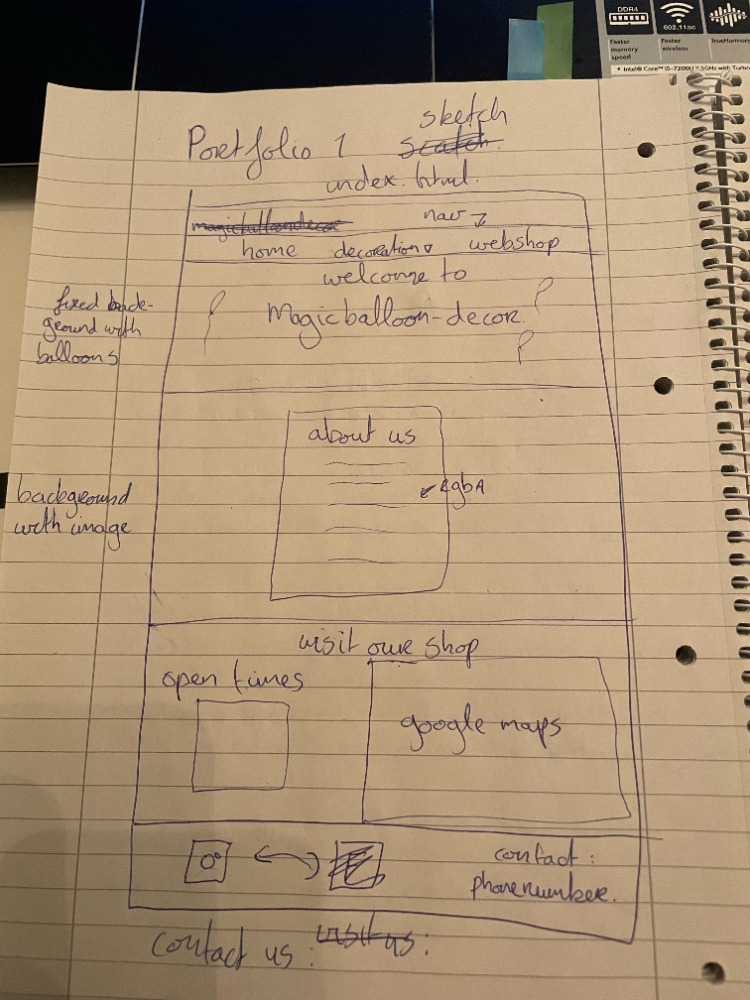 DDR4
802.11ac
Faster memory speed
Faster wireless
TrueHarmony
• Intel® Core™ i5-7200U 2.5GHz with Turbo
sketch
Portfolio 1 scatch
index.html.
magicballoondecor nav
home decoration webshop
welcome to
Magicballoon-decor.
fixed back-
ground with
balloons
about us
rgbA
background
with image
visit our shop
open times
google maps
contact:
phonenumber.
contact us : visit us: